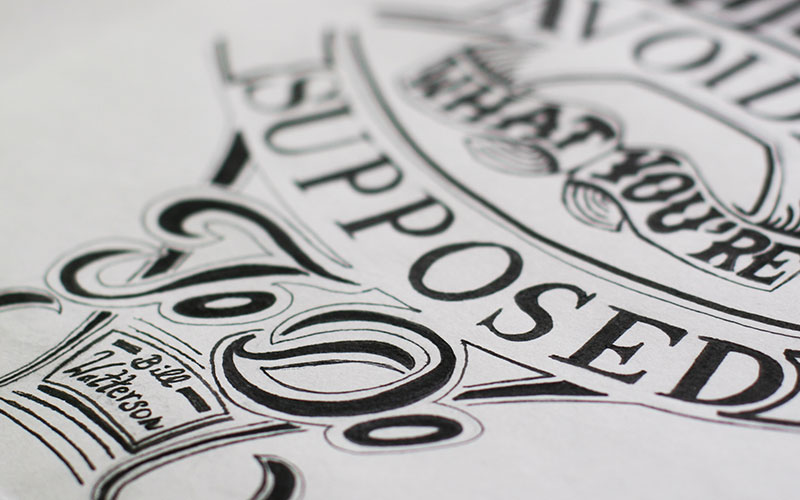 VOID
WHAT YOU'RE
SUPPOSED
To Do
Bill
Watterson